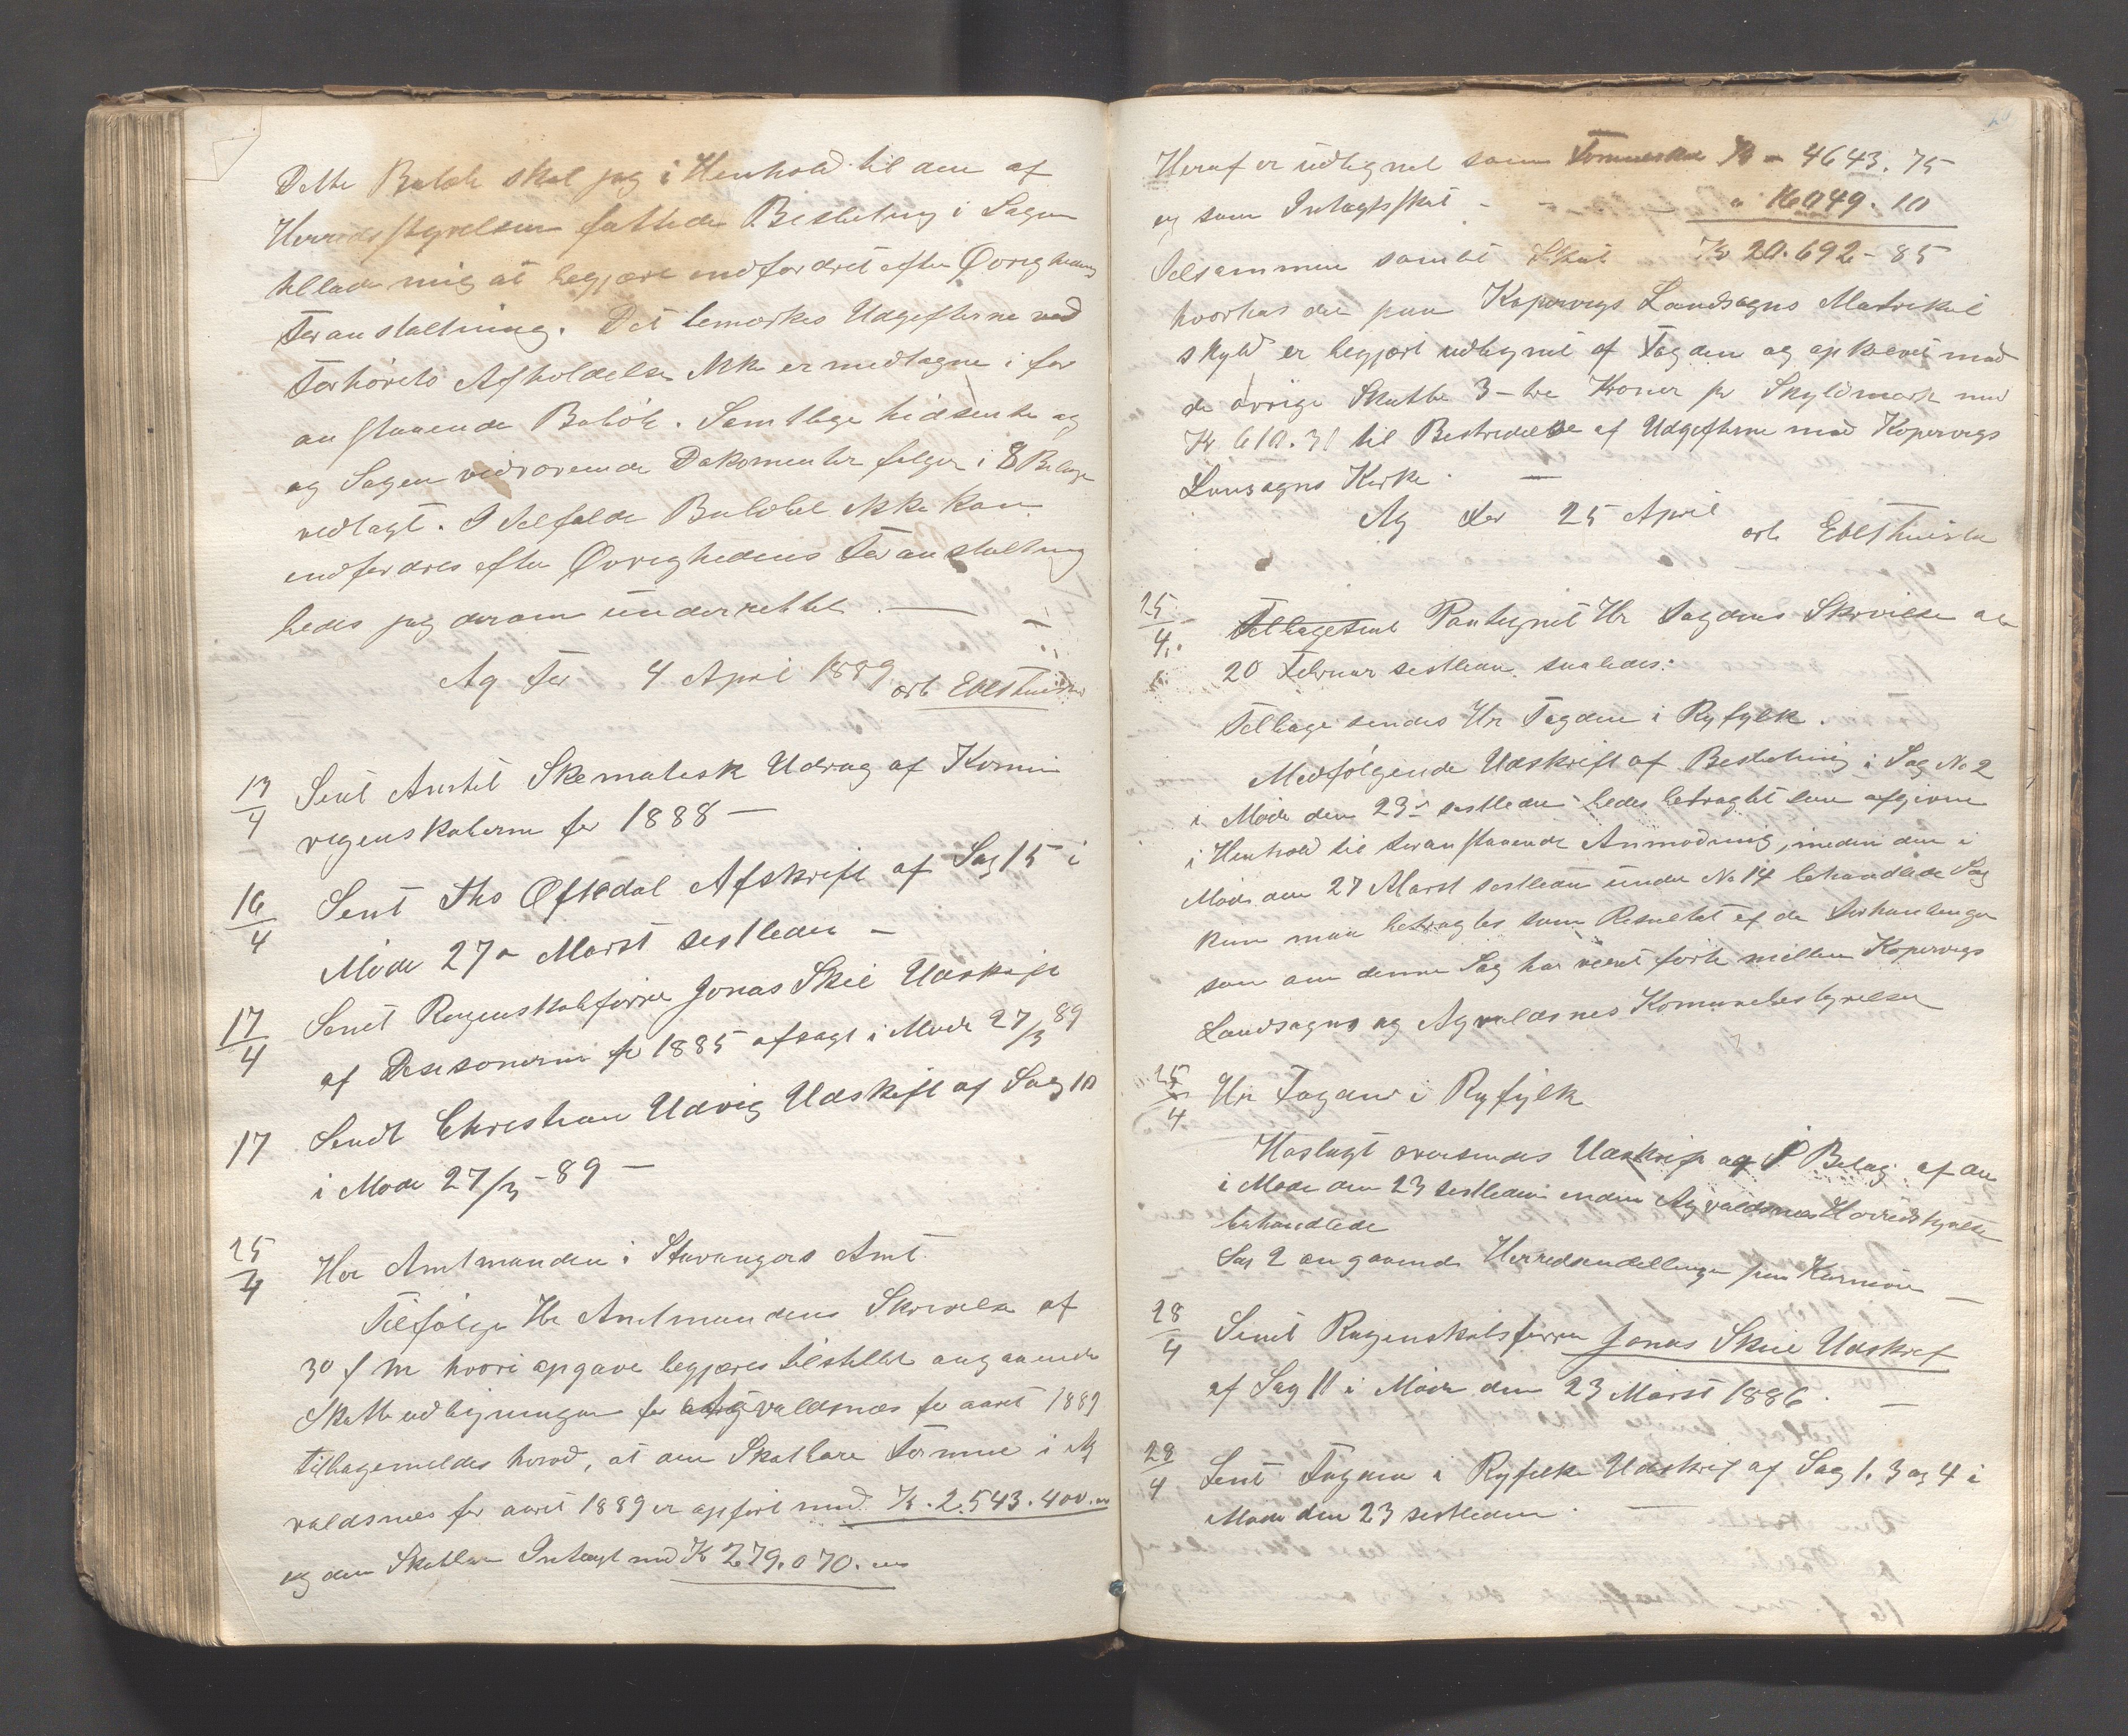 Dette Beløb skal jeg i Henhold til den af
Herredsstyrelsen fattede Beslutning i Sagen
tillade mig at begjære indfordret efter Øvrighedens
Foranstaltning. Det bemærkes Udgifterne ved
Forhørets Afholdelse ikke er medtagne i for
anstaaende Beløb. Samtlige hidsente og
og Sagen vedrørende Dokomenter følger i 8 Bilage
vedlagt. I Tilfælde Beløbet ikke kan
indfordres efter Øvrighedens Foranstaltning
bedes jeg derom underrettet. —
Ag For 4 April 1889 arb
13/4 Sent Amtet Skematisk Udrag af Komm
regenskaberne for 1888 —
16/4 Sent Ths Øftedal Afskrift af Sag 15 i
Møde 27de Marst sestleden —
17/4 Sent Regenskabsfører Jonas Skeie Udskrift
af Desisonerne for 1885 afsagt i Møde 27/3 89
17 Sendt Christian Udvig Udskrift af Sag 10
i Møde 27/3 - 89 —
25/4 Her Amtmanden i Stavangers Amt
Tilfølge Hr Amtmandens Skrivelse af
30 f M hvori opgave begjæres tilstillet angaaende
Skatteudligningen for Agvaldsnes for aaret 1889
tilbagemeldes herved, at den Skatbare Formue i Ag
valdsnes for aaret 1889 er opført med K. 2.543.400.00
og den Skatbare Intægt med K 279.070.00
Heraf er udlignet som Formueskat Kr - 4643.75
og som Intægtsskat - - - " 16049.10
Telsammen samlet Skat Kr 20.692-85
hvorhos der paa Kopervigs Landsogns Matrikul
skyld er begjært udlignet af Fogden og opkrævet med
de øvrige Skatte 3 - tre Kroner pr Skyldmark med
Kr 610.31 til Bestridelse af Udgifterne med Kopervigs
Lansogns Kirke. —
Ag For 25 April
arb
25/4 Tilbagesent Paategnet Hr Fogdens Skrivelse af
20 Februar sestleden saaledes:
Telbagesendes Hr Fogden i Ryfylk.
Medfølgende Udskrift af Beslutning i Sag No 2
i Møde den 23de sestleden bedes betragtet som afgiven
i Henhold til foranstaaende Anmodning, meden den i
Møde den 27 Marst sestleden under No 14 behandlede Sag
kun maa betragtes som Resultat af de Forhanlinger
som om denne Sag har veret førte mellem Kopervigs
Landsogns og Agvaldsnes Komunebestyrelser
25/4 Hr Fogden i Ryfylk
Hoslagt oversendes Udskrift og Belag af den
i Møde den 23 sestleden inden Agvaldsnes Herredsstyrelse
behandlede
Sag 2 angaaende Herredsindelingen paa Karmøen —
28/4 Sent Regenskabsføreren Jonas Skeie Udskrif
af Sag 11 i Møde den 23 Marst 1886. —
28/4 Sent Fogden i Ryfylke Udskrif af Sag 1. 3 og 4 i
Møde den 23 sestleden. —